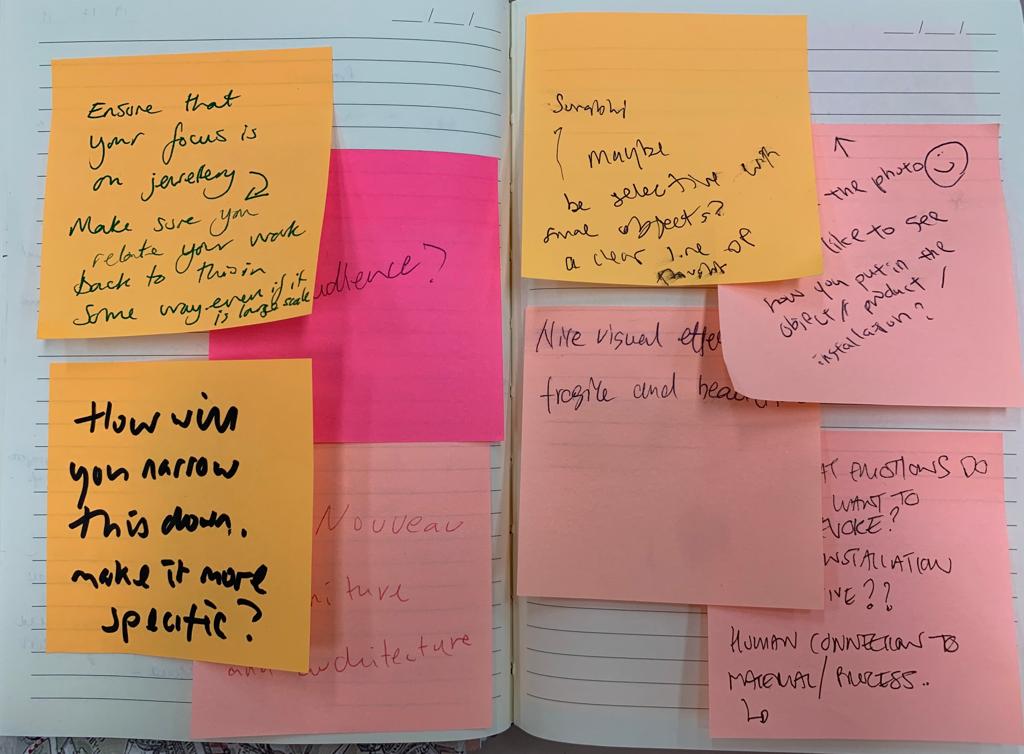 Ensure that
your focus is
on jewellery
Make sure you
relate your work
back to this in
some way even if it
is large scale
udience?
How will
you narrow
this down.
make it more
specific?
Nouveau
iture
and architecture
Maybe
be selective with
some objects?
a clear line of
thought
the photo
like to see
how you put in the
object / product /
installation?
Nice visual effe
fragile and beau
EMOTIONS DO
WANT TO
EVOKE?
INSTALLATION
IVE??
HUMAN CONNECTION TO
MATERIAL/PROCESS..